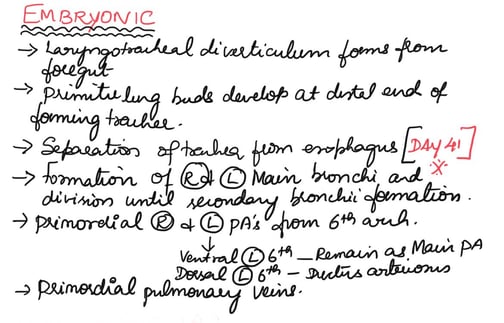 EMBRYONIC
→ Laryngotracheal diverticulum forms from
foregut
→ Primitive lung buds develop at distal end of
forming trachee.
→ Separation of trachea from esophagus [DAY 41]
→ Formation of Ⓡ & Ⓛ Main bronchi and
division until secondary bronchii formation.
→ Primordial Ⓡ & Ⓛ PA's from 6th arch.
↓
Ventral Ⓛ 6th – Remain as Main PA
Dorsal Ⓛ 6th – Ductus arteriosus
→ Primordial pulmonary veins.